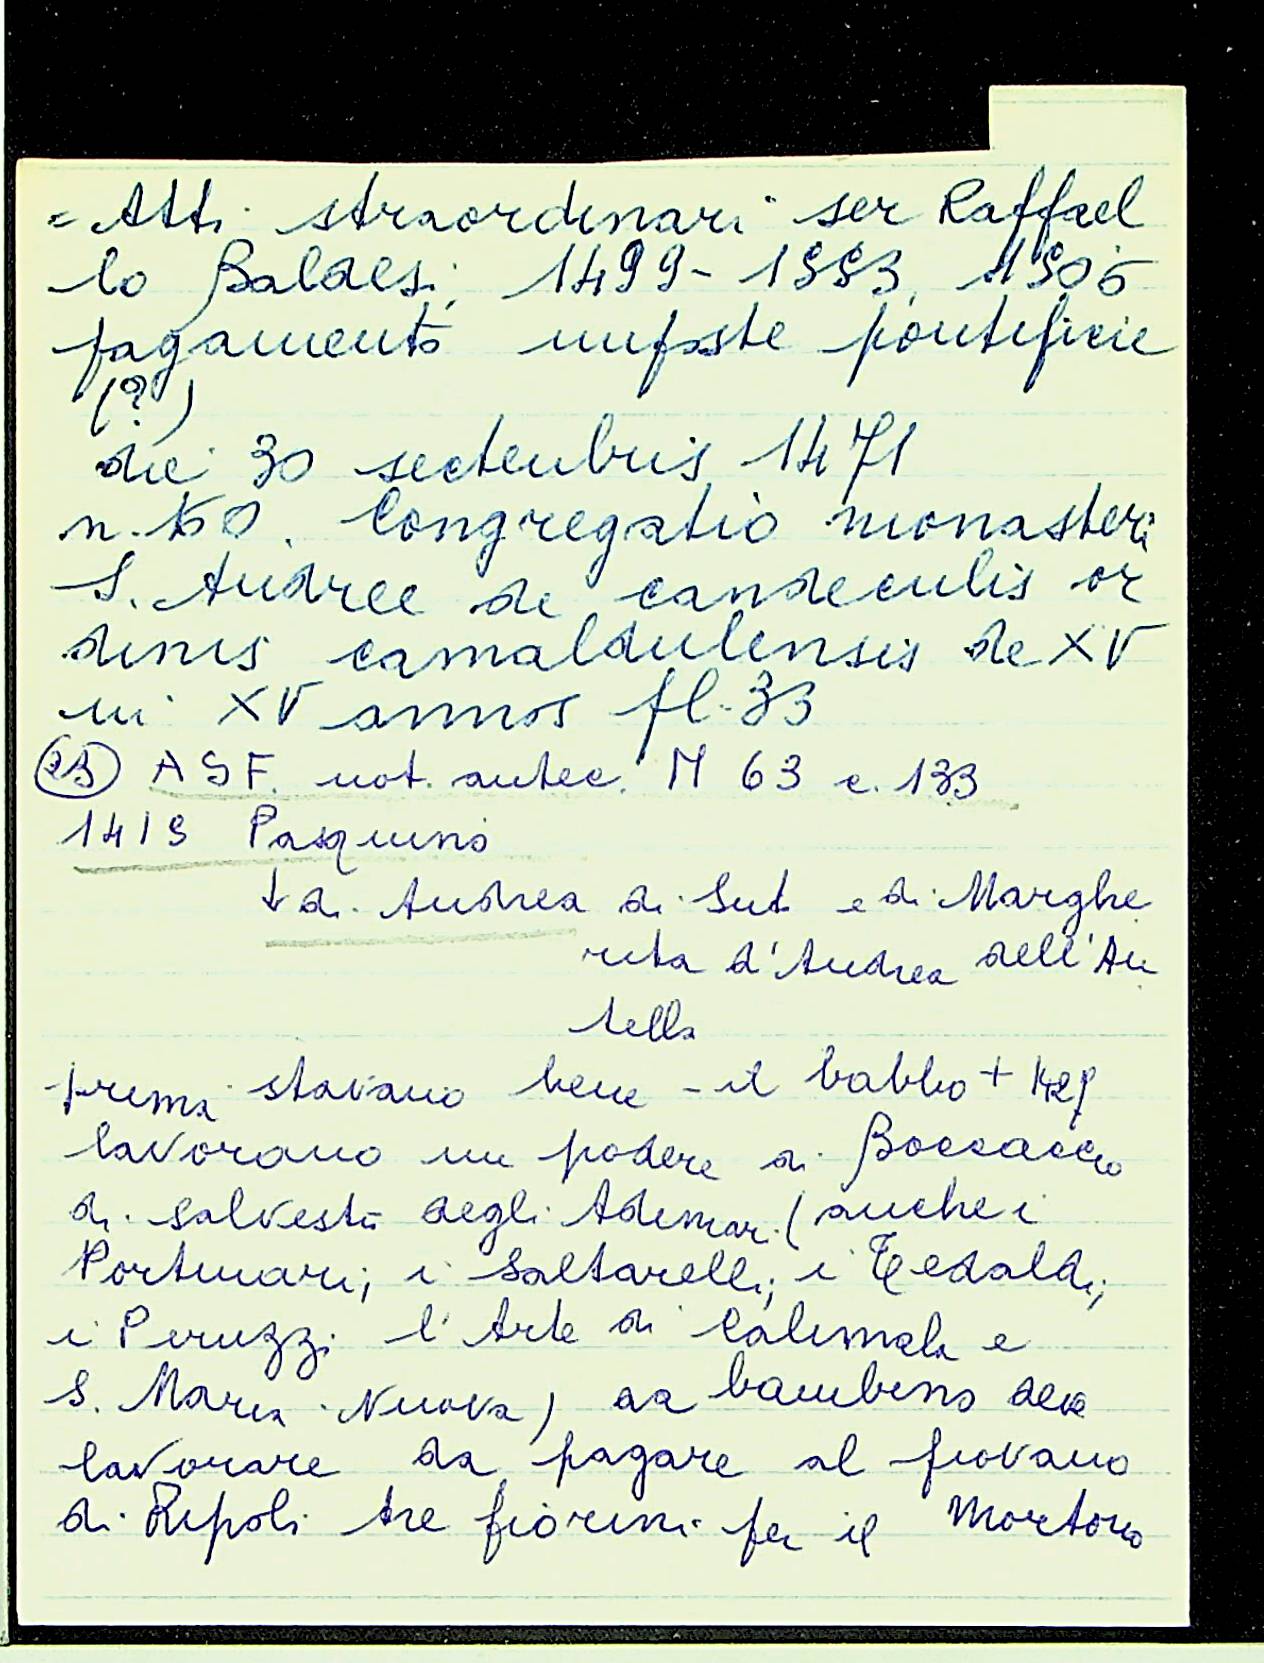 "Atti straordinari" ser Raffael
lo Baldesi, 1499-1553, 1505
pagamento imposte pontificie
(?)
die 30 sectenbris 1471
n. 150. Congregatio monasteri
S. Andree de candeculis or
dinis camaldulensis de XV
in XV annos fl. 33
ASF. not. antec. M 63 c. 133
1415 Pasquino
↓ di Andrea di Sut e di Marghe
rita d'Andrea dell'An
tella
prima stavano bene - il babbo + 1427
lavorano un podere di Boccaccio
di Salvestro degli Adimari (anche i
Portinari; i Saltarelli; i Tedaldi;
i Peruzzi l'Arte di Calimala e
S. Maria Nuova) da bambino deve
lavorare da pagare al piovano
di Ripoli tre fiorini per il Mortorio